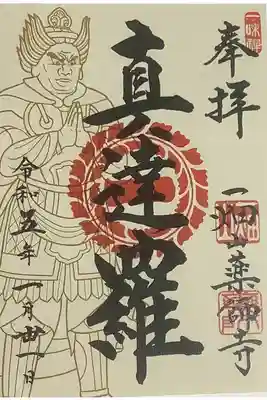 奉拝
一畑山薬師寺
真達羅
令和五年一月廿一日